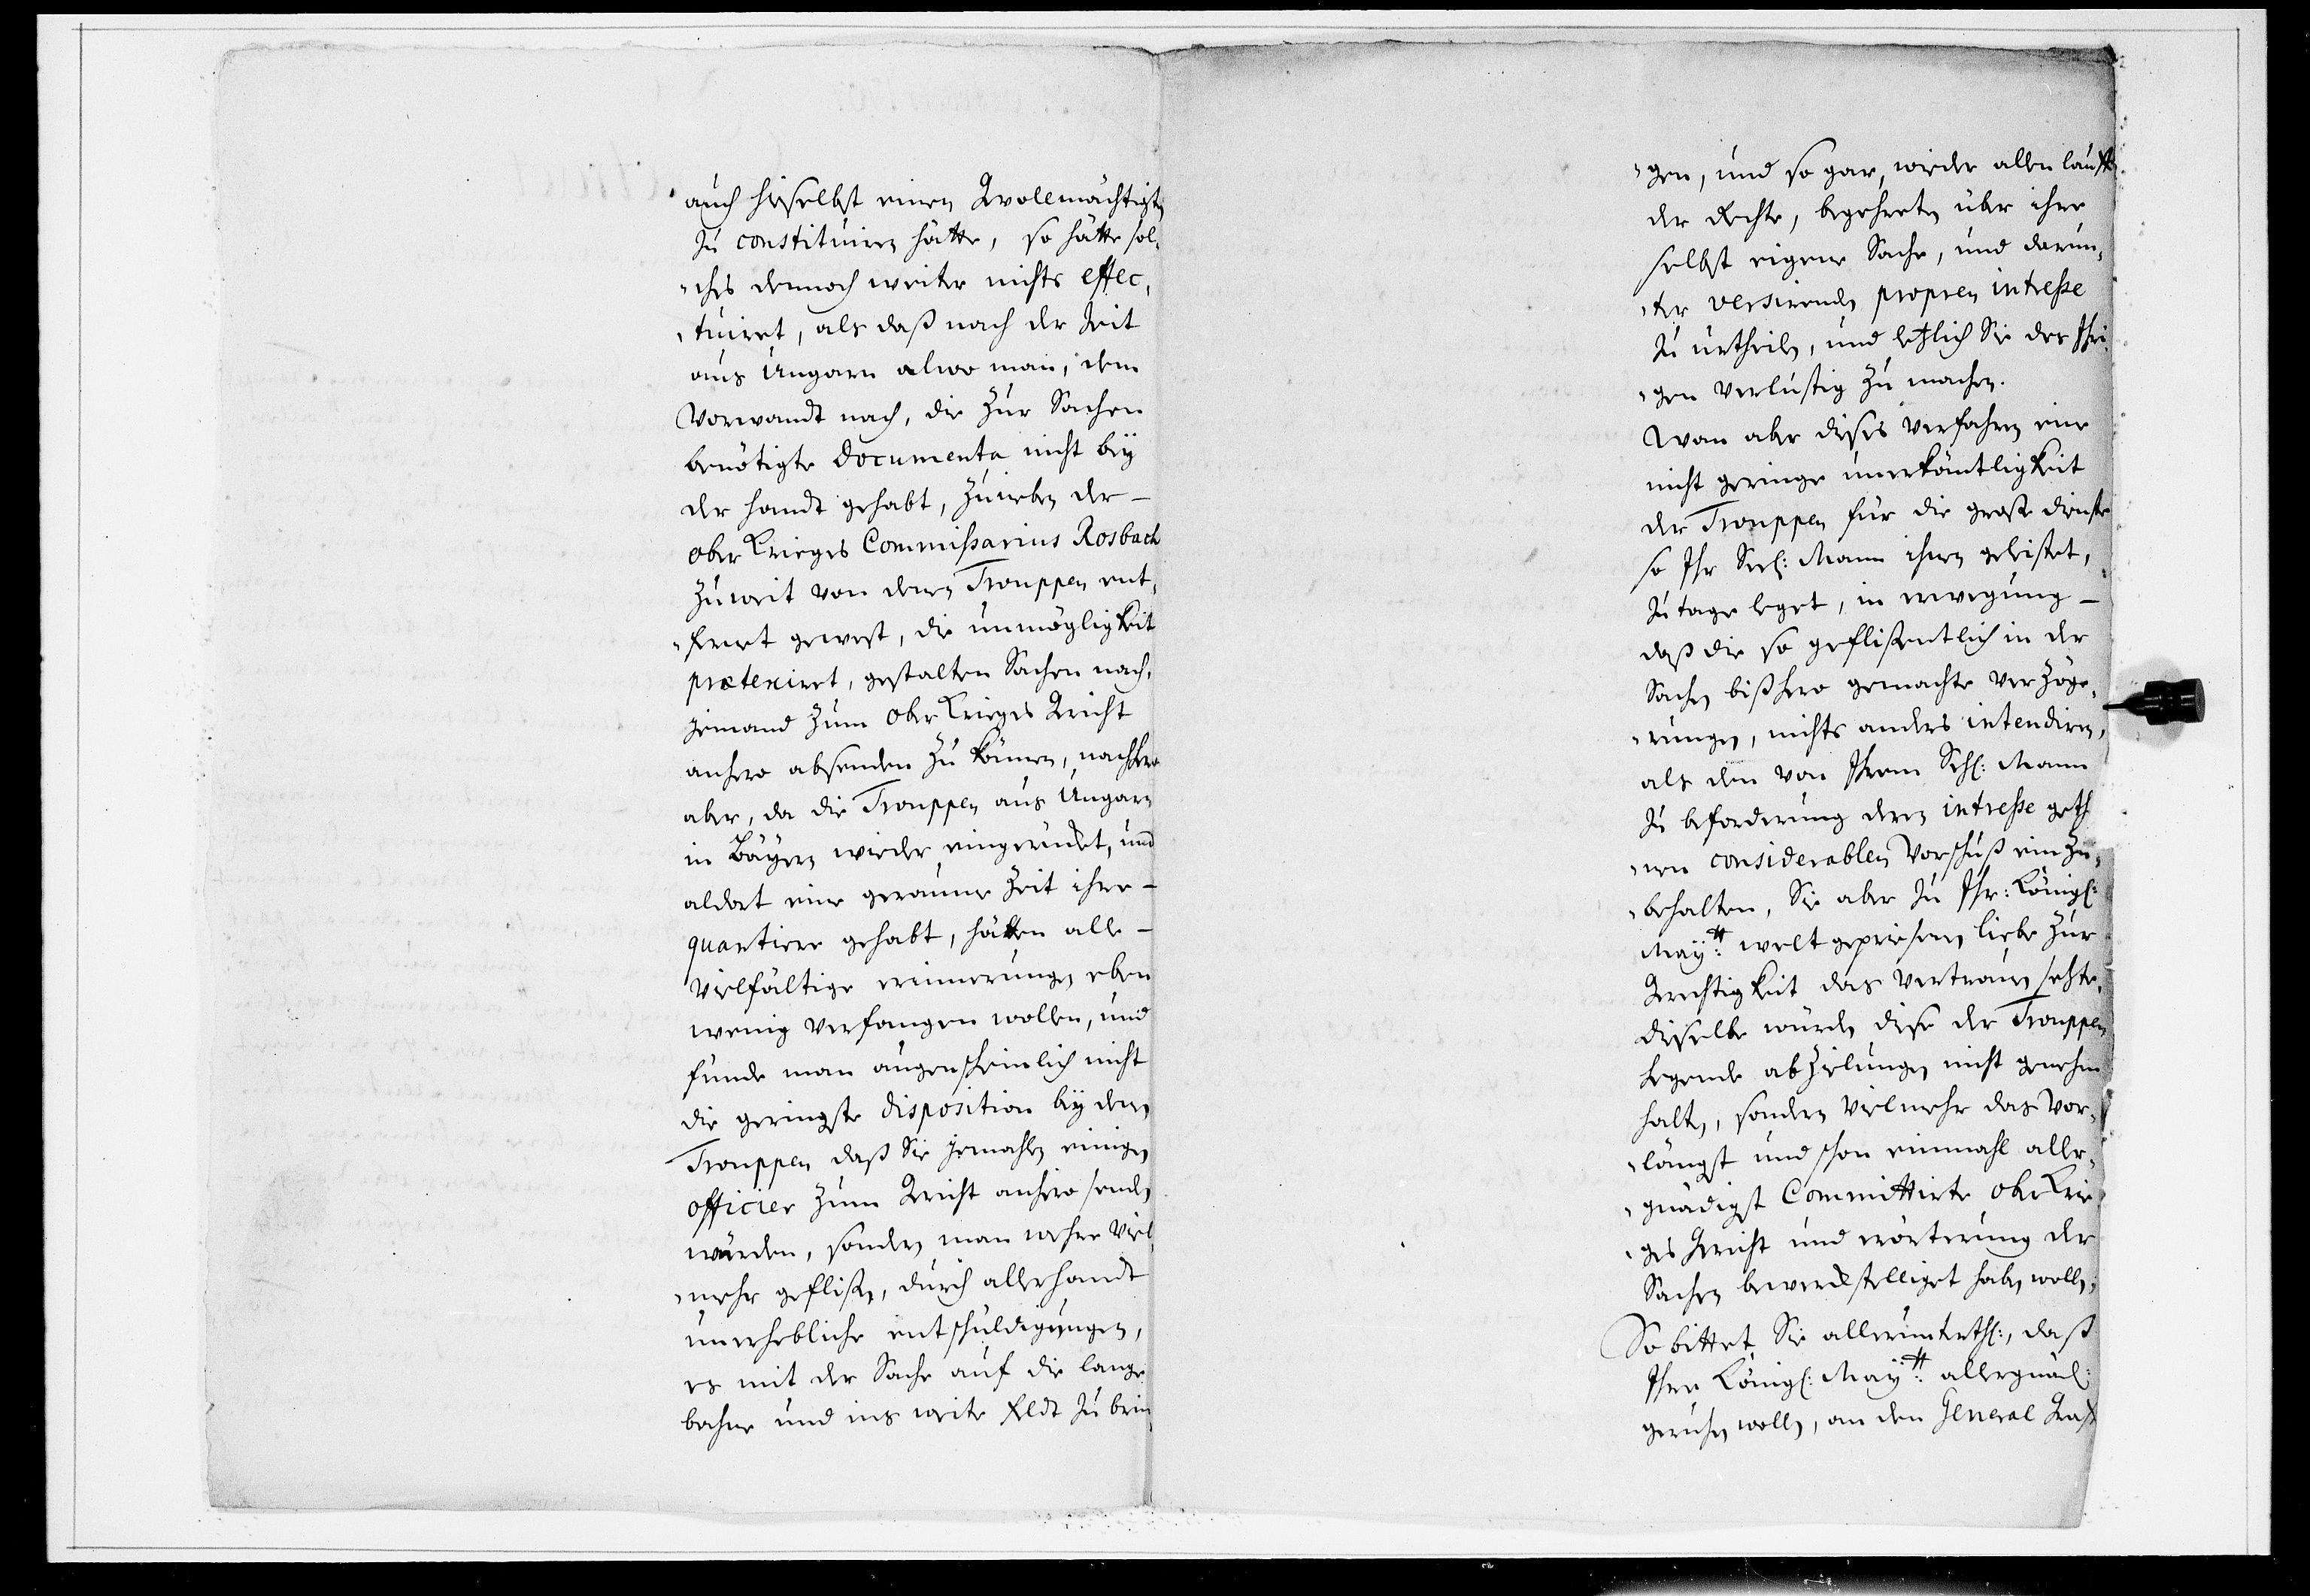 auch hieselbst einen Gvollmächtigten
zu constituiren hätte, so hätte sol-
ches dennoch weiter nichts effec-
tuiret, als daß nach der Zeit
aus Ungarn alwo man, dem
Vorwandt nach, die zur Sachen
benötigte Documenta nicht bey
der handt gehabt, zuweilen der-
ober Krieges Commissarius Rosbach
zu weit von denen Trouppen ent-
fernet gewest, die unmögligkeit
prætexiret, gestalten Sachen nach,
jemand zum ober Krieges Gericht
anhero absenden zu können, nachhero
aber, da die Trouppen aus Ungarn
in Bäyern wieder eingerückt, und
aldort eine geraume Zeit ihre-
quartiere gehabt, hätten alle-
vielfältige erinnerungen eben
wenig verfangen wollen, und
funde man augenscheinlich nicht
die geringste disposition bey denen
Trouppen daß Sie jemahls einigen
officier zum Gericht anhero senden
würden, sondern man wehre viel-
mehr geflißen, durch allerhandt
unerhebliche entschuldigungen,
es mit der Sache auf die lange
bahne und ins weite Feldt zu brin-
gen, und so gar, wieder allen lauff
der Rechte, begehreten über ihre
selbst eigene Sache, und darun-
ter versirenden propren intresse
zu urtheilen, und letzlich Sie des Ihri-
gen verlustig zu machen.
Wan aber dieses Verfahren eine
nicht geringe unerkäntligkeit
der Trouppen für die große dienste
so Ihr Seel: Mann ihnen geleistet,
zu tage leget, in erwegung-
daß die so geflißentlich in der
Sachen bißhero gemachte verzöge-
rungen, nichts anders intendiren,
als den von Ihrem Sehl: Mann
zu beforderung deren intresse geth
nen considerablen Vorschuß einzu-
behalten, Sie aber zu Ihr: Königl:
Mäy:tt weltgepriesenen liebe zur
Gerechtigkeit das Vertrauen setzte,
dieselbe würden diese der Trouppen
hegende abzielungen nicht genehm
halten, sondern vielmehr das vor-
längst und schon einmahl aller-
gnädigst Committirte ober Krie-
ges Gericht und erörterung der
Sachen bewerckstelliget haben wollen;
So bittet Sie allerunterth:, daß
Ihre Königl: Mäy:tt allergnäd:
geruhen wollen, an den General